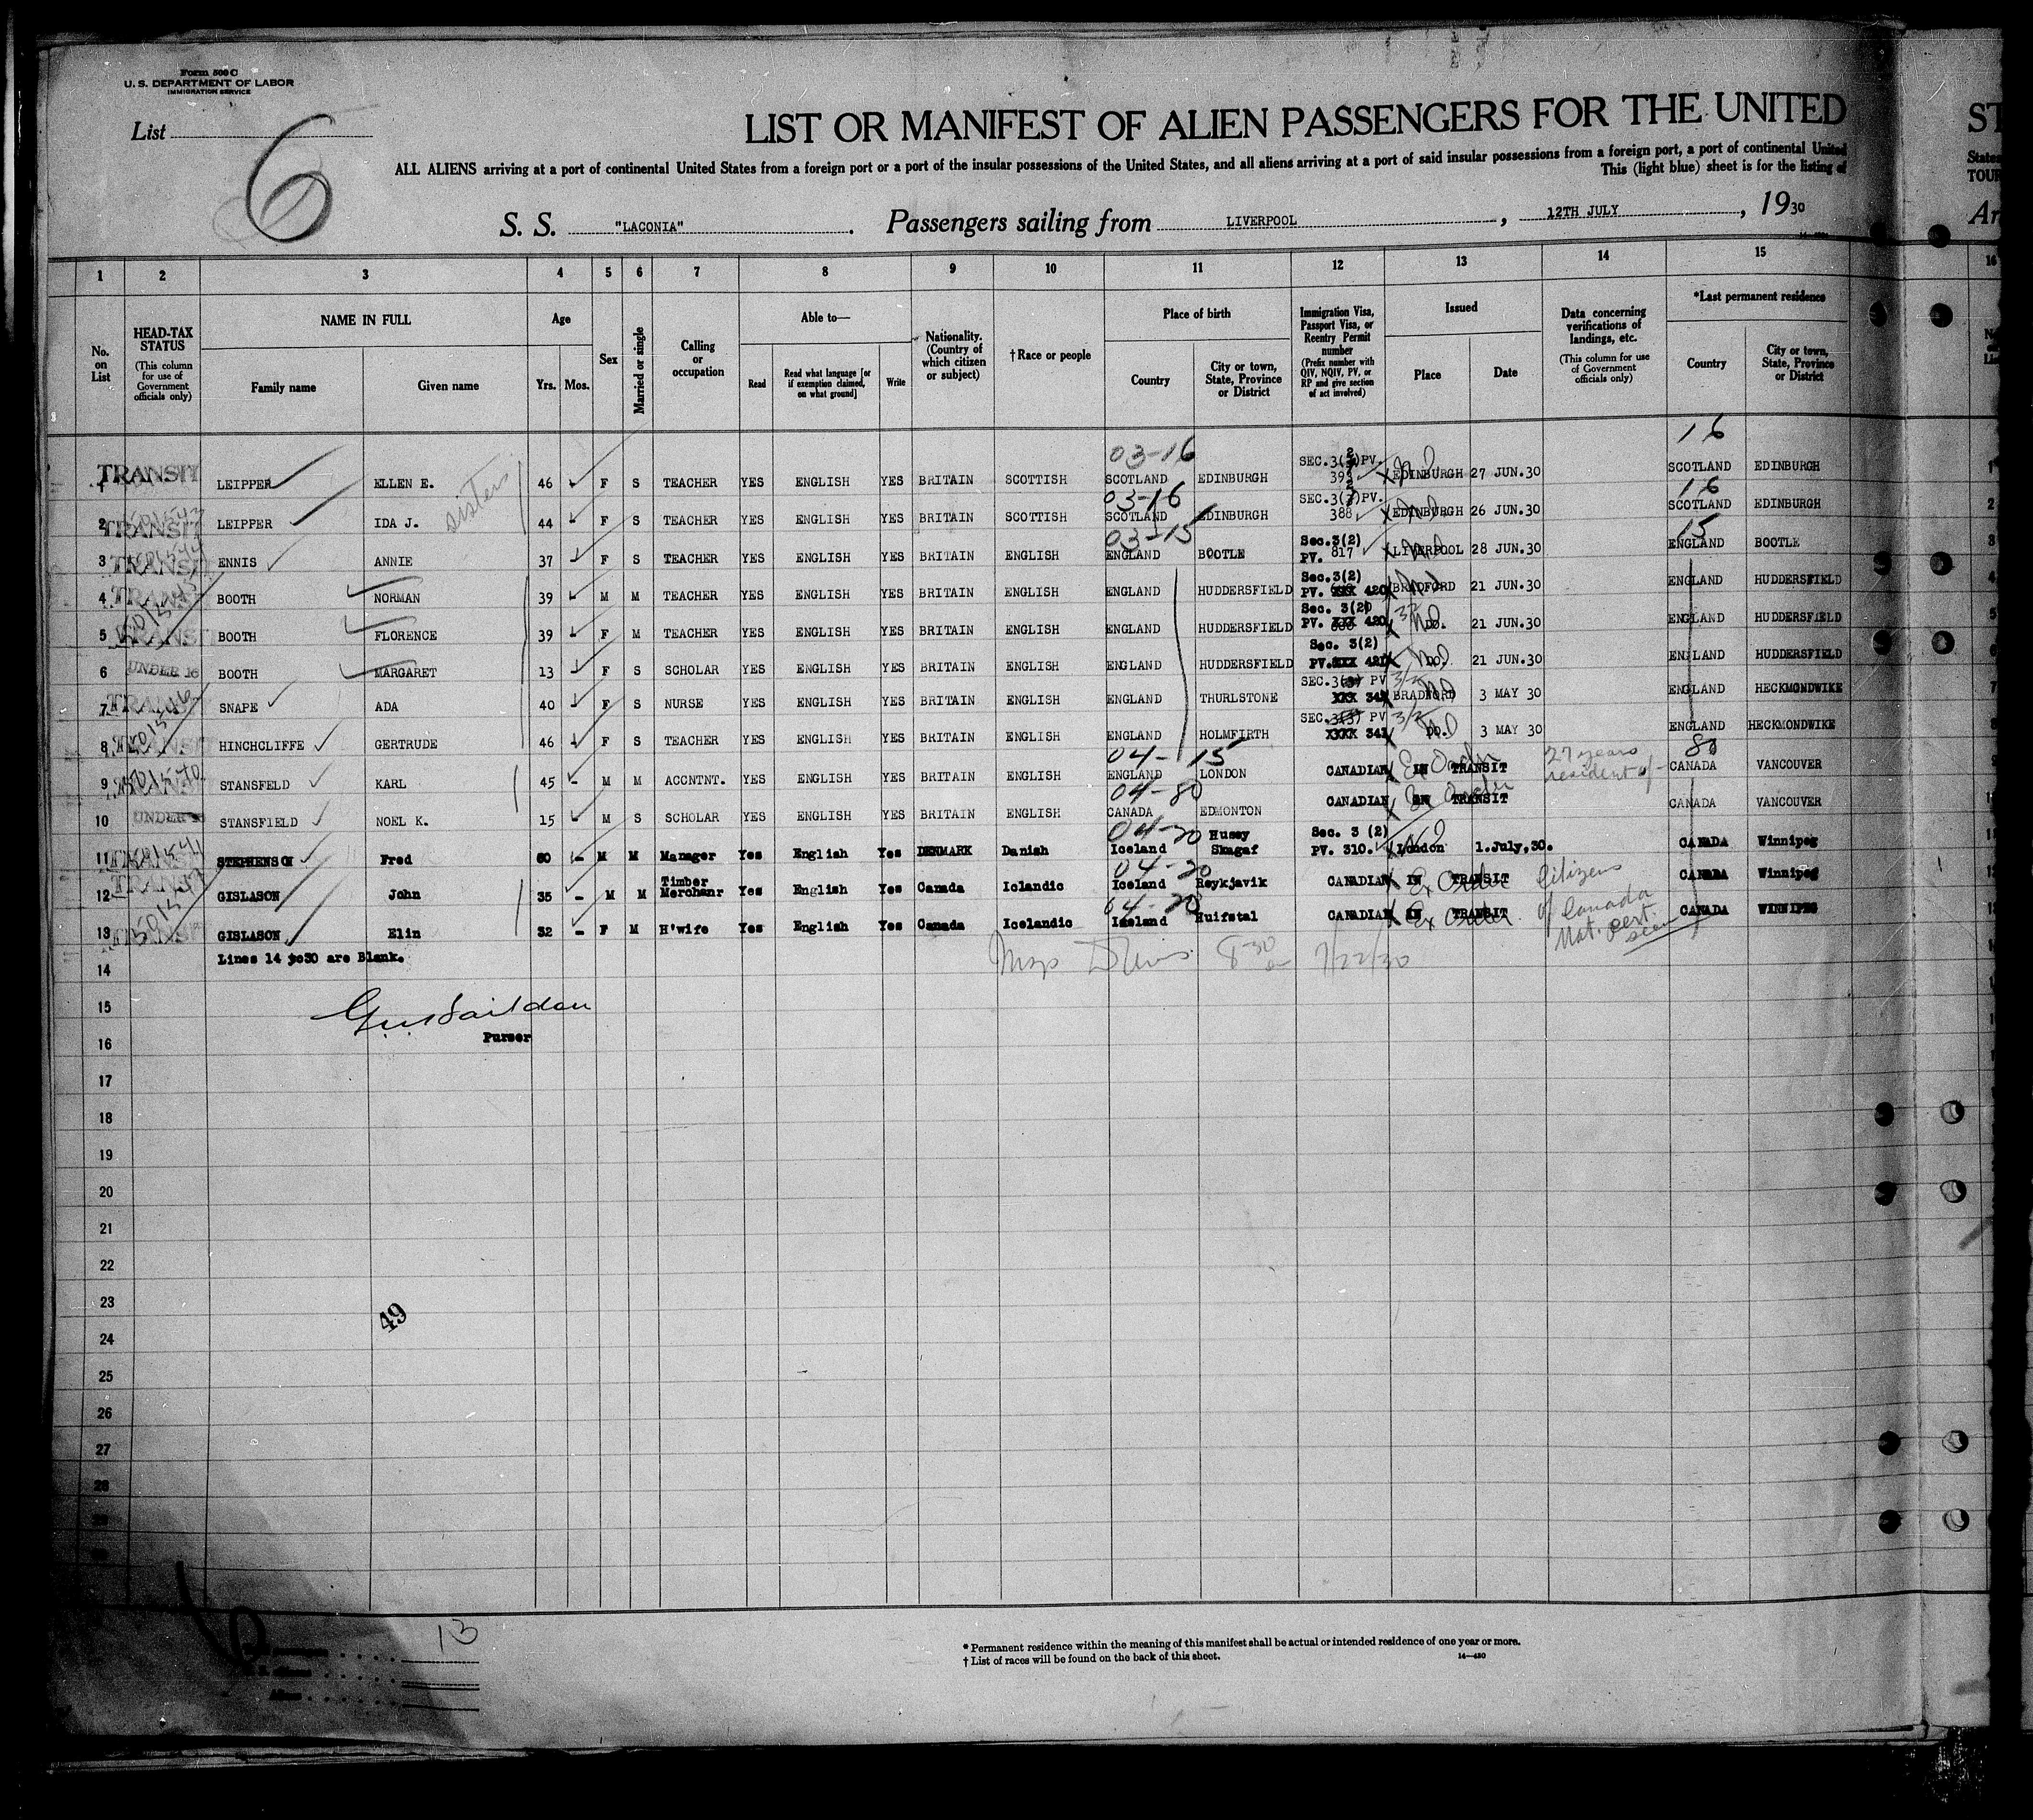 Form 500 C
U. S. DEPARTMENT OF LABOR
IMMIGRATION SERVICE
List
6
LIST OR MANIFEST OF ALIEN PASSENGERS FOR THE UNITED
ST
ALL ALIENS arriving at a port of continental United States from a foreign port or a port of the insular possessions of the United States, and all aliens arriving at a port of said insular possessions from a foreign port, a port of continental United
States
This (light blue) sheet is for the listing of
TOUR
S. S. "LACONIA". Passengers sailing from LIVERPOOL, 12TH JULY, 1930
Ar
1 2 3 4 5 6 7 8 9 10 11 12 13 14 15 16
No. on List
HEAD-TAX STATUS (This column for use of Government officials only)
NAME IN FULL
Family name Given name
Age
Yrs. Mos.
Sex
Married or single
Calling or occupation
Able to—
Read Read what language [or if exemption claimed, on what ground] Write
Nationality. (Country of which citizen or subject)
† Race or people
Place of birth
Country City or town, State, Province or District
Immigration Visa, Passport Visa, or Reentry Permit number (Prefix number with QIV, NQIV, PV, or RP and give section of act involved)
Issued
Place Date
Data concerning verifications of landings, etc. (This column for use of Government officials only)
*Last permanent residence
Country City or town, State, Province or District
03-16 16
1 TRANSIT LEIPPER ELLEN E. sisters 46 F S TEACHER YES ENGLISH YES BRITAIN SCOTTISH SCOTLAND EDINBURGH SEC.3(2)PV. EDINBURGH 27 JUN.30 SCOTLAND EDINBURGH
03-16 16
2 TRANSIT LEIPPER IDA J. 44 F S TEACHER YES ENGLISH YES BRITAIN SCOTTISH SCOTLAND EDINBURGH SEC.3(2)PV. 388 EDINBURGH 26 JUN.30 SCOTLAND EDINBURGH
03-15 15
3 TRANSIT ENNIS ANNIE 37 F S TEACHER YES ENGLISH YES BRITAIN ENGLISH ENGLAND BOOTLE Sec.3(2) PV. 817 LIVERPOOL 28 JUN.30 ENGLAND BOOTLE
4 TRANSIT BOOTH NORMAN 39 M M TEACHER YES ENGLISH YES BRITAIN ENGLISH ENGLAND HUDDERSFIELD Sec.3(2) PV. XXX 420 BRADFORD 21 JUN.30 ENGLAND HUDDERSFIELD
5 TRANSIT BOOTH FLORENCE 39 F M TEACHER YES ENGLISH YES BRITAIN ENGLISH ENGLAND HUDDERSFIELD Sec. 3(2) PV. XXX 420 DO. 21 JUN.30 ENGLAND HUDDERSFIELD
6 UNDER 16 BOOTH MARGARET 13 F S SCHOLAR YES ENGLISH YES BRITAIN ENGLISH ENGLAND HUDDERSFIELD Sec. 3(2) PV.XXX 421 DO. 21 JUN.30 ENGLAND HUDDERSFIELD
7 TRANSIT SNAPE ADA 40 F S NURSE YES ENGLISH YES BRITAIN ENGLISH ENGLAND THURLSTONE SEC.3(3) PV 3/2 XXX 342 BRADFORD 3 MAY 30 ENGLAND HECKMONDWIKE
8 TRANSIT HINCHCLIFFE GERTRUDE 46 F S TEACHER YES ENGLISH YES BRITAIN ENGLISH ENGLAND HOLMFIRTH SEC.3(3) PV 3/2 XXXX 341 DO. 3 MAY 30 ENGLAND HECKMONDWIKE
04-15 80
9 STANSFELD KARL 45 - M M ACCNTNT. YES ENGLISH YES BRITAIN ENGLISH ENGLAND LONDON CANADIAN IN TRANSIT Ex Order 27 years resident of - CANADA VANCOUVER
04-80
10 UNDER 16 STANSFIELD NOEL K. 15 M S SCHOLAR YES ENGLISH YES BRITAIN ENGLISH CANADA EDMONTON CANADIAN IN TRANSIT Ex Order CANADA VANCOUVER
04-20
11 TRANSIT STEPHENSON Fred 60 - M M Manager Yes English Yes DENMARK Danish Iceland Husey Skagaf Sec. 3 (2) PV. 310. London 1.July,30. CANADA Winnipeg
04-20
12 TRANSIT GISLASON John 35 - M M Timber Merchanr Yes English Yes Canada Iclandic Iceland Reykjavik CANADIAN IN TRANSIT Ex Order Citizens CANADA Winnipeg
04-20
13 TRANSIT GISLASON Elin 32 - F M H'wife Yes English Yes Canada Icelandic Iceland Huifstal CANADIAN IN TRANSIT Ex Order of Canada Nat. Cert. seen CANADA WINNIPEG
Lines 14 to30 are Blank.
7/22/30
14
15
Purser
16
17
18
19
20
21
22
23
49
24
25
26
27
28
29
30
13
* Permanent residence within the meaning of this manifest shall be actual or intended residence of one year or more.
† List of races will be found on the back of this sheet.
14—430